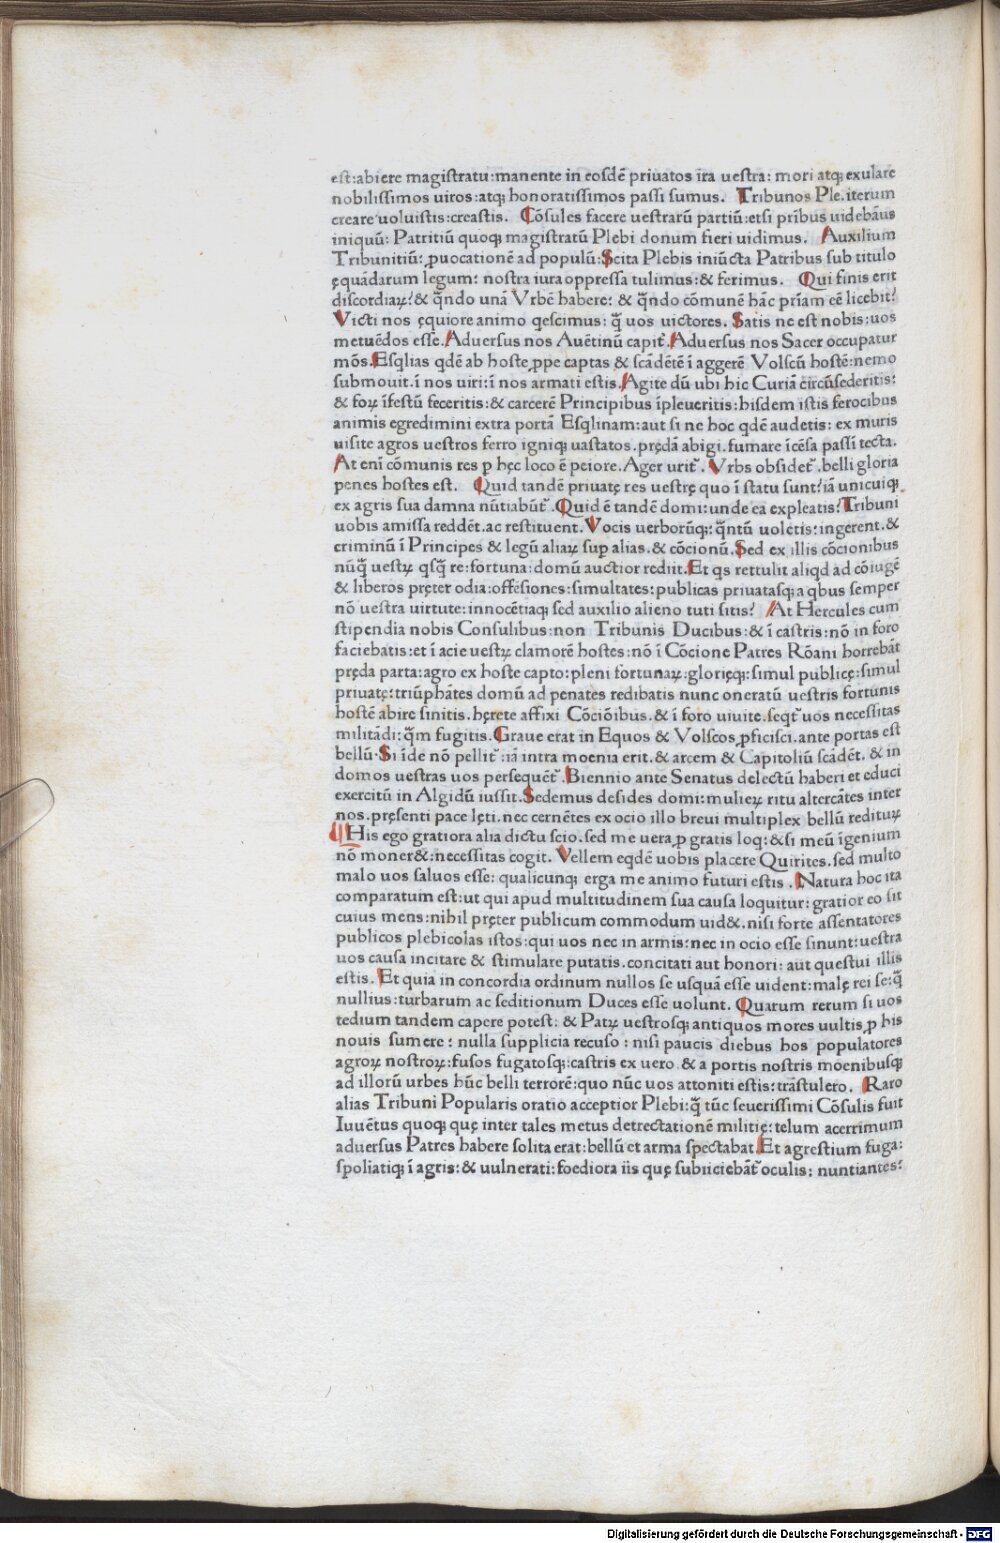 est:abiere magistratu:manente in eosdē priuatos ira uestra: mori atqꝫ exulare
nobilissimos uiros:atqꝫ honoratissimos passi sumus. Tribunos Ple.iterum
creare uoluistis:creastis. Cōsules facere uestrarū partiū:etsi prībus uidebāus
iniquū: Patritiū quoqꝫ magistratū Plebi donum fieri uidimus. Auxilium
Tribunitiū: ꝓuocationē ad populū:Scita Plebis iniūcta Patribus sub titulo
ęquādarum legum: nostra iura oppressa tulimus:& ferimus. Qui finis erit
discordiaꝝ?& qn̄do unā Vrbē habere: & qn̄do cōmunē hāc prīam eē licebit?
Victi nos ęquiore animo qescimus: q̄ uos uictores. Satis ne est nobis:uos
metuēdos esse.Aduersus nos Auētinū capit᷑.Aduersus nos Sacer occupatur
mōs.Esqlias qdē ab hoste ꝓpe captas & scādētē ī aggerē Volscū hostē:nemo
submouit.ī nos uiri:ī nos armati estis.Agite dū ubi hic Curiā circūsederitis:
& foꝝ īfestū feceritis:& carcerē Principibus īpleueritis:hisdem istis ferocibus
animis egredimini extra portā Esqlinam:aut si ne hoc qdē audetis: ex muris
uisite agros uestros ferro igniqꝫ uastatos.prędā abigi.fumare īcēsa passī tecta.
At enī cōmunis res ꝑ hęc loco ē peiore.Ager urit᷑. Vrbs obsidet᷑.belli gloria
penes hostes est. Quid tandē priuatę res uestrę quo ī statu sunt?iā unicuiqꝫ
ex agris sua damna nūtiabūt᷑.Quid ē tandē domi:unde ea expleatis?Tribuni
uobis amissa reddēt.ac restituent.Vocis uerborūqꝫ:qn̄tū uoletis:ingerent.&
criminū ī Principes & legū aliaꝝ suꝑ alias.& cōcionū.Sed ex illis cōcionibus
nūq̄ uestꝝ qsq̄ re:fortuna:domū auctior rediit.Et qs rettulit aliqd ad cōiugē
& liberos pręter odia:offēsiones:simultates:publicas priuatasqꝫ:a qbus semper
nō uestra uirtute:innocētiaqꝫ sed auxilio alieno tuti sitis? At Hercules cum
stipendia nobis Consulibus:non Tribunis Ducibus:& ī castris:nō in foro
faciebatis:et ī acie uestꝝ clamorē hostes:nō ī Cōcione Patres Rōani horrebāt
pręda parta:agro ex hoste capto:pleni fortunaꝝ:glorięqꝫ:simul publicę:simul
priuatę:triūphātes domū ad penates redibatis nunc oneratū uestris fortunis
hostē abire sinitis.hęrete affixi Cōciōibus.& ī foro uiuite.seqt᷑ uos necessitas
militādi:q̄m fugitis.Graue erat in Equos & Volscos ꝓficisci.ante portas est
bellū.Si īde nō pellit᷑:iā intra moenia erit.& arcem & Capitoliū scādēt.& in
domos uestras uos persequēt᷑.Biennio ante Senatus delectū haberi et educi
exercitū in Algidū iussit.Sedemus desides domi:mulieꝝ ritu altercātes inter
nos.pręsenti pace lęti.nec cernētes ex ocio illo breui multiplex bellū redituꝝ
His ego gratiora alia dictu scio.sed me uera ꝓ gratis loq:&si meū īgenium
nō moner&:necessitas cogit. Vellem eqdē uobis placere Quirites.sed multo
malo uos saluos esse: qualicunqꝫ erga me animo futuri estis .Natura hoc ita
comparatum est:ut qui apud multitudinem sua causa loquitur:gratior eo sit
cuius mens:nihil pręter publicum commodum uid&.nisi forte assentatores
publicos plebicolas istos:qui uos nec in armis:nec in ocio esse sinunt:uestra
uos causa incitare & stimulare putatis.concitati aut honori: aut questui illis
estis. Et quia in concordia ordinum nullos se usquā esse uident:malę rei se:q̄
nullius:turbarum ac seditionum Duces esse uolunt. Quarum rerum si uos
tedium tandem capere potest: & Patꝝ uestrosqꝫ antiquos mores uultis ꝓ his
nouis sumere: nulla supplicia recuso: nisi paucis diebus hos populatores
agroꝝ nostroꝝ:fusos fugatosqꝫ:castris exuero & a portis nostris moenibusqꝫ
ad illorū urbes hūc belli terrorē:quo nūc uos attoniti estis:trāstulero. Raro
alias Tribuni Popularis oratio acceptior Plebi:q̄ tūc seuerissimi Cōsulis fuit
Iuuētus quoqꝫ quę inter tales metus detrectationē militię:telum acerrimum
aduersus Patres habere solita erat:bellū et arma spectabat.Et agrestium fuga:
spoliatiqꝫ ī agris:& uulnerati:foediora iis quę subiiciebāt᷑ oculis: nuntiantes:
Digitalisierung gefördert durch die Deutsche Forschungsgemeinschaft - DFG